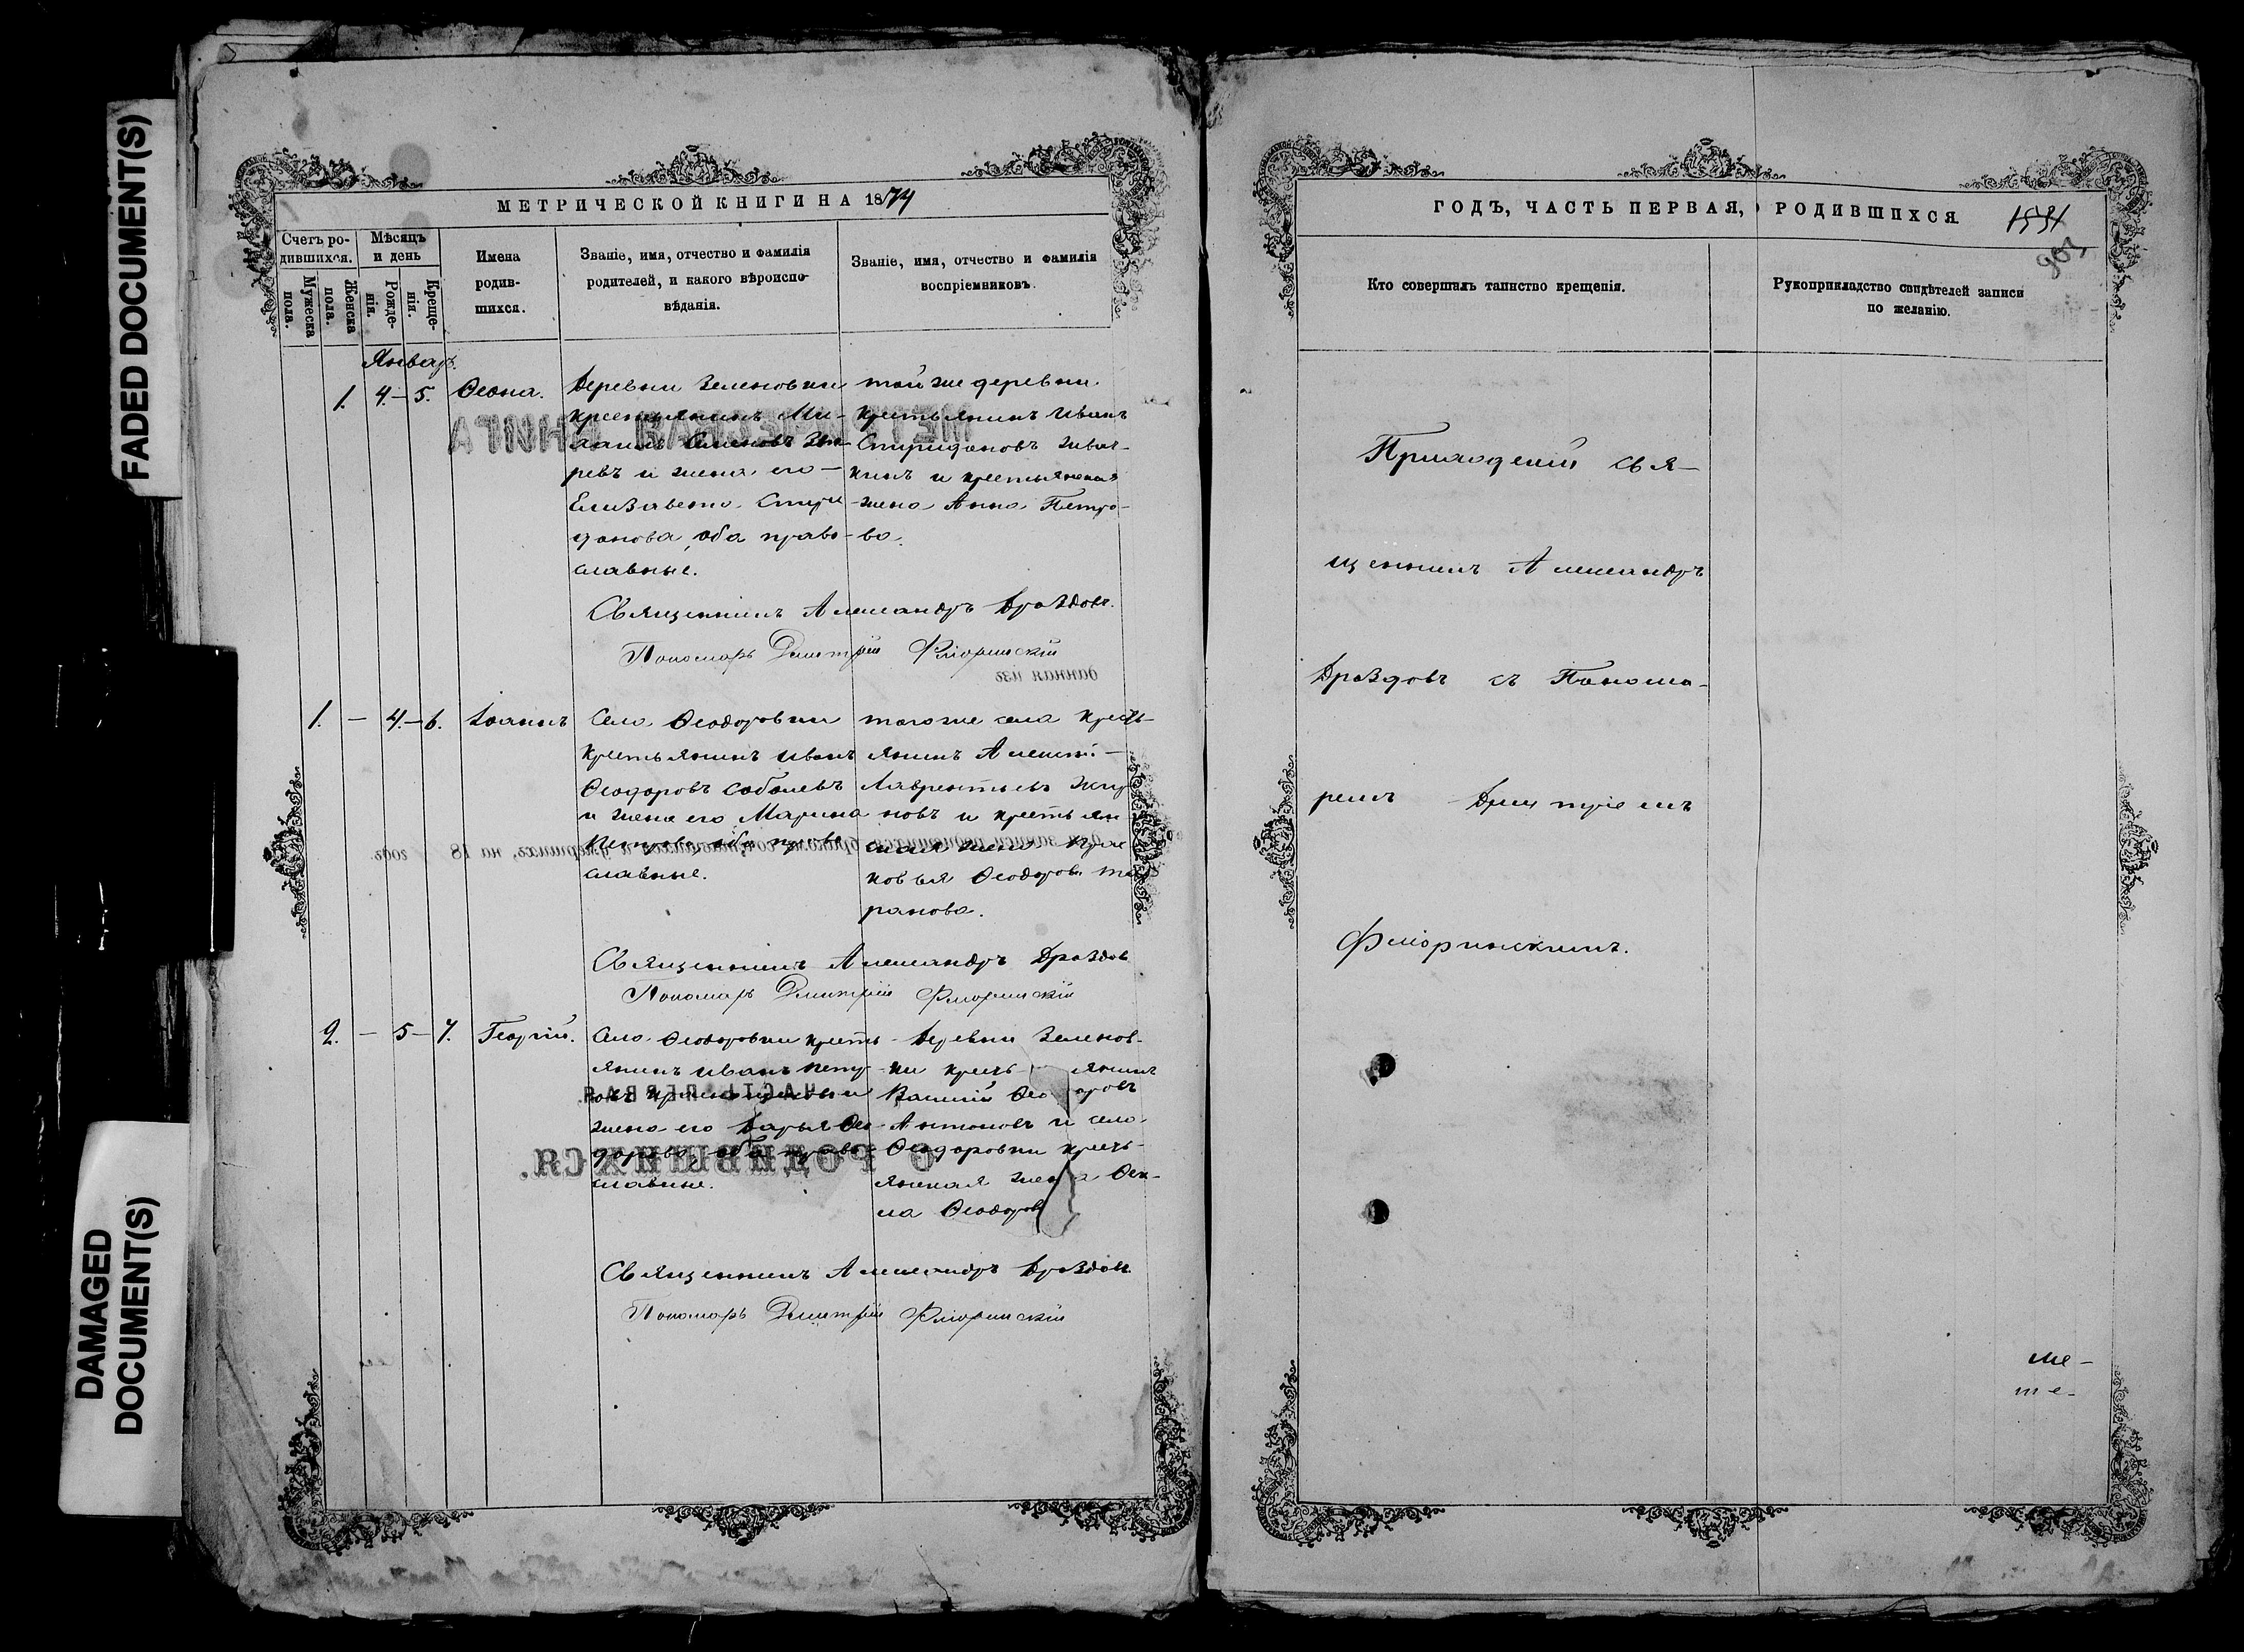 FADED DOCUMENT(S)
DAMAGED
DOCUMENT(S)
МЕТРИЧЕСКОЙ КНИГИ НА 1874
Счетъ ро-
дившихся.
Мужеска
пола.
Женска
пола.
Мѣсяцъ
и день
Рожде-
нія.
Креще-
нія.
Имена
родив-
шихся.
Званіе, имя, отчество и фамилія
родителей, и какого вѣроиспо-
вѣданія.
Званіе, имя, отчество и фамилія
воспріемниковъ.
Январь
1. 4.– 5. Ѳеона.
Деревни Зеленовки
крестьянинъ Ми-
хаилъ
ревъ и жена его –
Елизавета Спири
донова, оба право-
славные.
той же деревни
крестьянинъ Иванъ
Спиридоновъ
кинъ и крестьянская
жена Анна Петро-
ва.
Священникъ Александръ Драздовъ.
Пономарь Дмитрій Флоринскій
данная изъ
1. – 4.– 6. Іоаннъ
Села Ѳеодоровки
крестьянинъ Иванъ
Ѳеодоровъ Соболевъ
и жена его Марина
Петрова, оба право
славные.
того же села кресть-
янинъ Алексѣй
Лаврентьевъ
новъ и крестьян
ская жена Прас
ковья Ѳеодоров
ранова.
Священникъ Александръ Драздов
Пономарь Дмитрій Флоринскій
2. – 5 – 7. Георгій.
Села Ѳеодоровки кресть-
янинъ Иванъ Петр
жена его Дарья Ѳео-
дорова, оба право-
славные.
Деревни Зеленов-
ки кресть янинъ
Василій Ѳео доровъ
Антоновъ и села
Ѳеодоровки кресть-
янская жена Ѳек-
ла Ѳеодоров
ЧАСТЬ ПЕРВАЯ.
О РОДИВШИХСЯ.
Священникъ Александръ Драздовъ
Пономарь Дмитрій Флоринскій
ГОДЪ, ЧАСТЬ ПЕРВАЯ, О РОДИВШИХСЯ
Кто совершалъ таинство крещенія.
Рукоприкладство свидѣтелей записи
по желанію.
Приходскій свя-
щенникъ Александръ
Драздовъ съ Понома-
ремъ Дмитріемъ
Флоринскимъ.